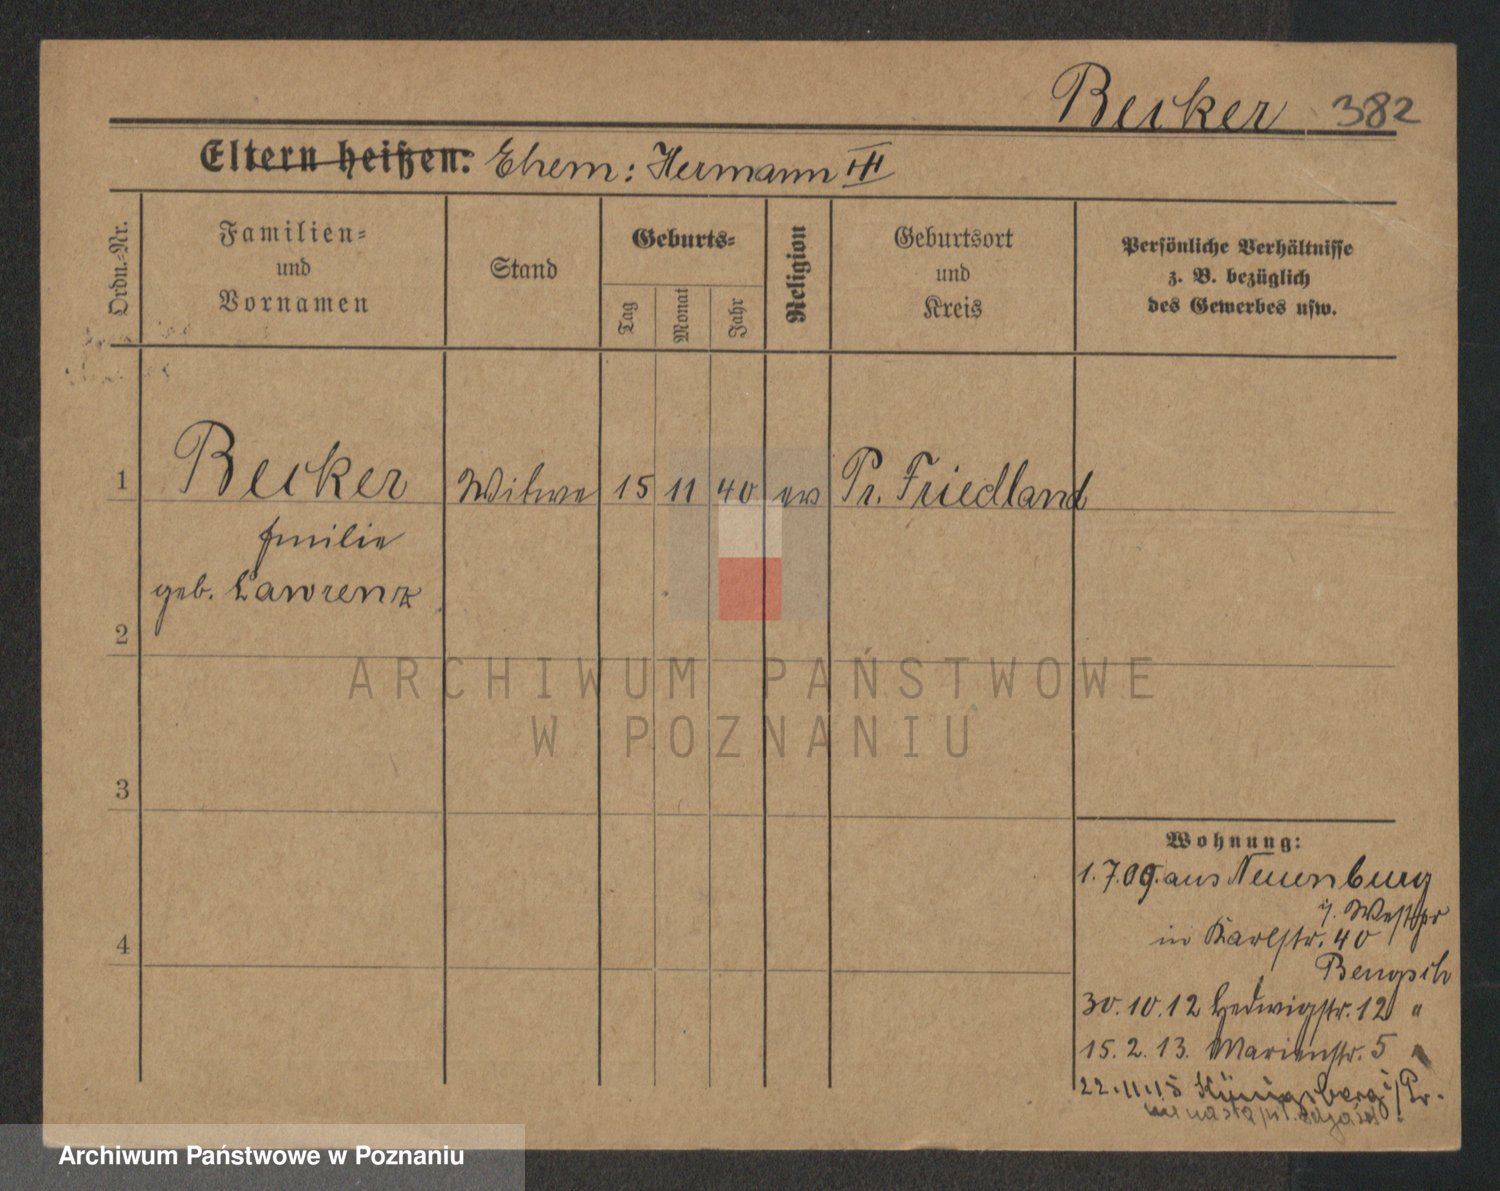 Becker 382
Eltern heißen: Ehem: Hermann III
Ordn.-Nr.
Familien-
und
Vornamen
Stand
Geburts-
Tag
Monat
Jahr
Religion
Geburtsort
und
Kreis
Persönliche Verhältnisse
z. B. bezüglich
des Gewerbes usw.
1 Becker Witwe 15 11 40 ev Pr. Friedland
Emilie
geb. Lawrenz
2
3
4
Wohnung:
1.7.09. aus Neuenburg
i. Westpr
in Karlstr. 40
30.10.12 Hedwigstr. 12 "
15.2.13. Marienstr. 5 "
22.11.15 Königsberg i/Pr.
ARCHIWUM PAŃSTWOWE
W POZNANIU
Archiwum Państwowe w Poznaniu